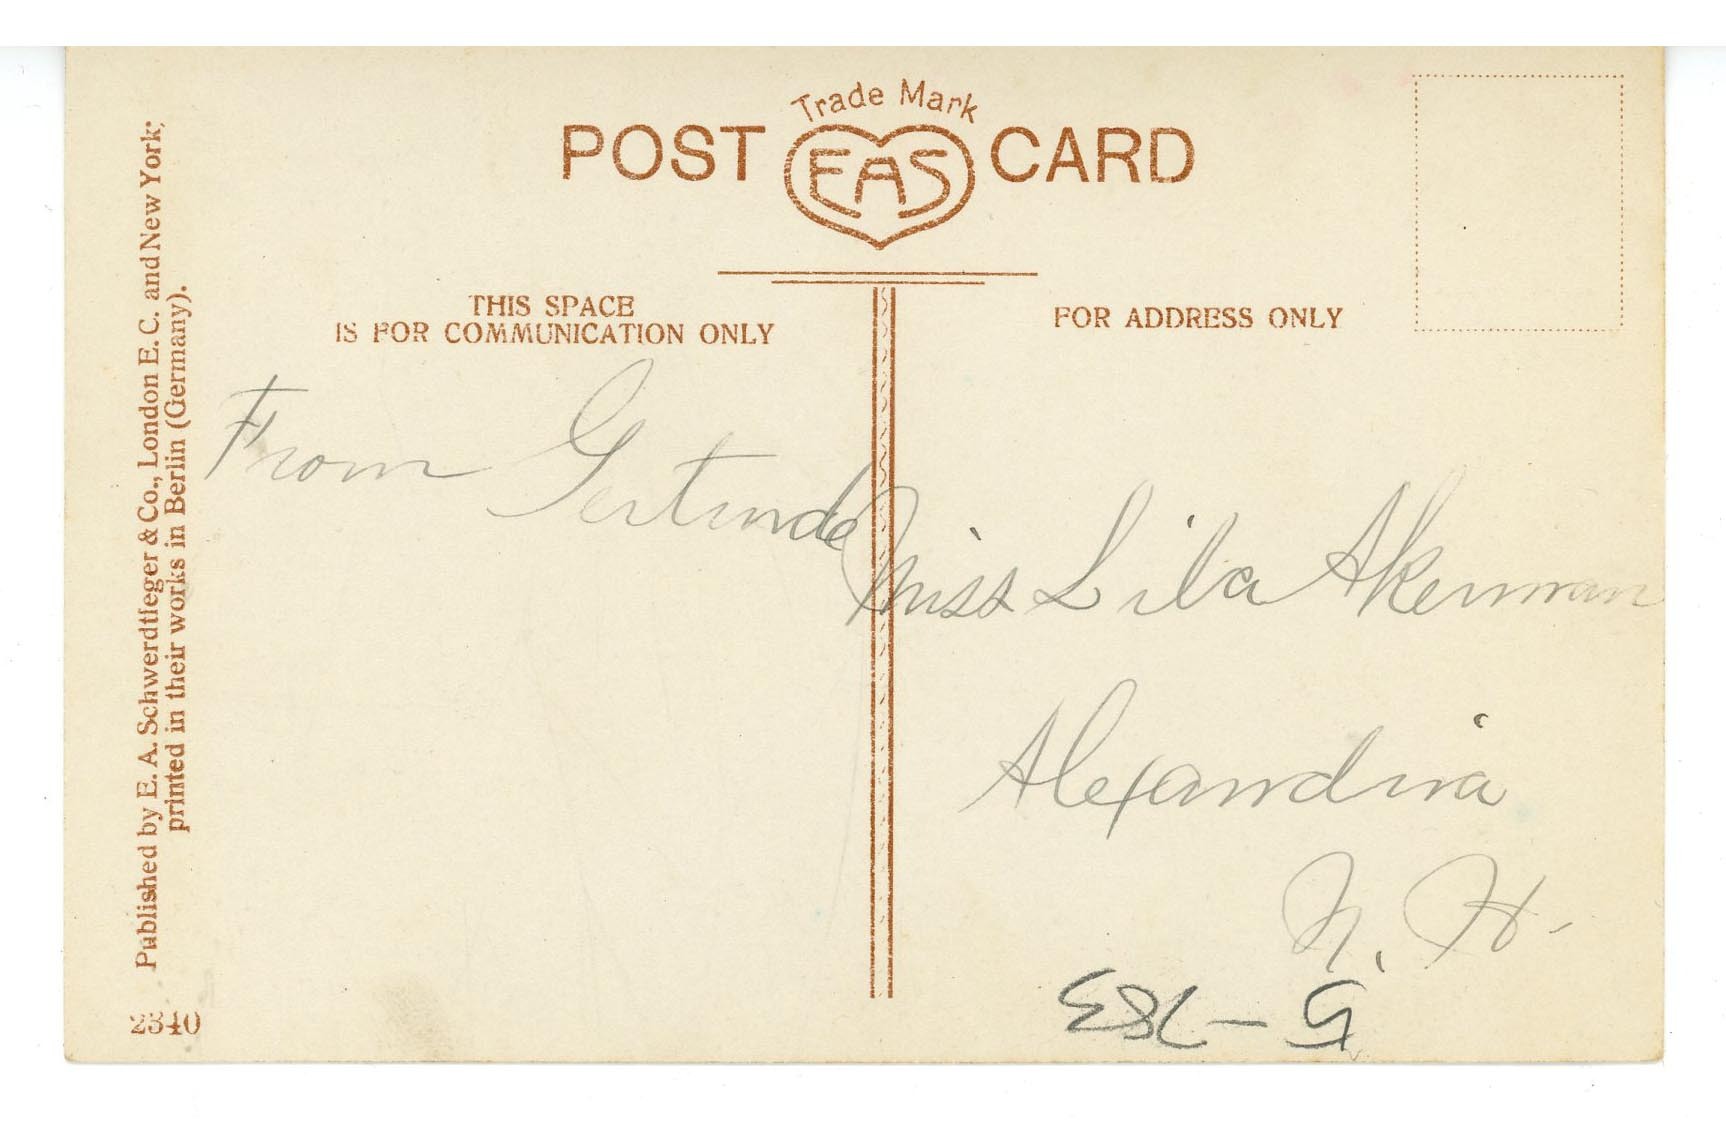 Trade Mark
POST EAS CARD
THIS SPACE
IS FOR COMMUNICATION ONLY
FOR ADDRESS ONLY
Published by E. A. Schwerdtfeger & Co., London E. C. and New York;
printed in their works in Berlin (Germany).
2340
From Gertrude
Miss Lila Akerman
Alexandria
N. H.